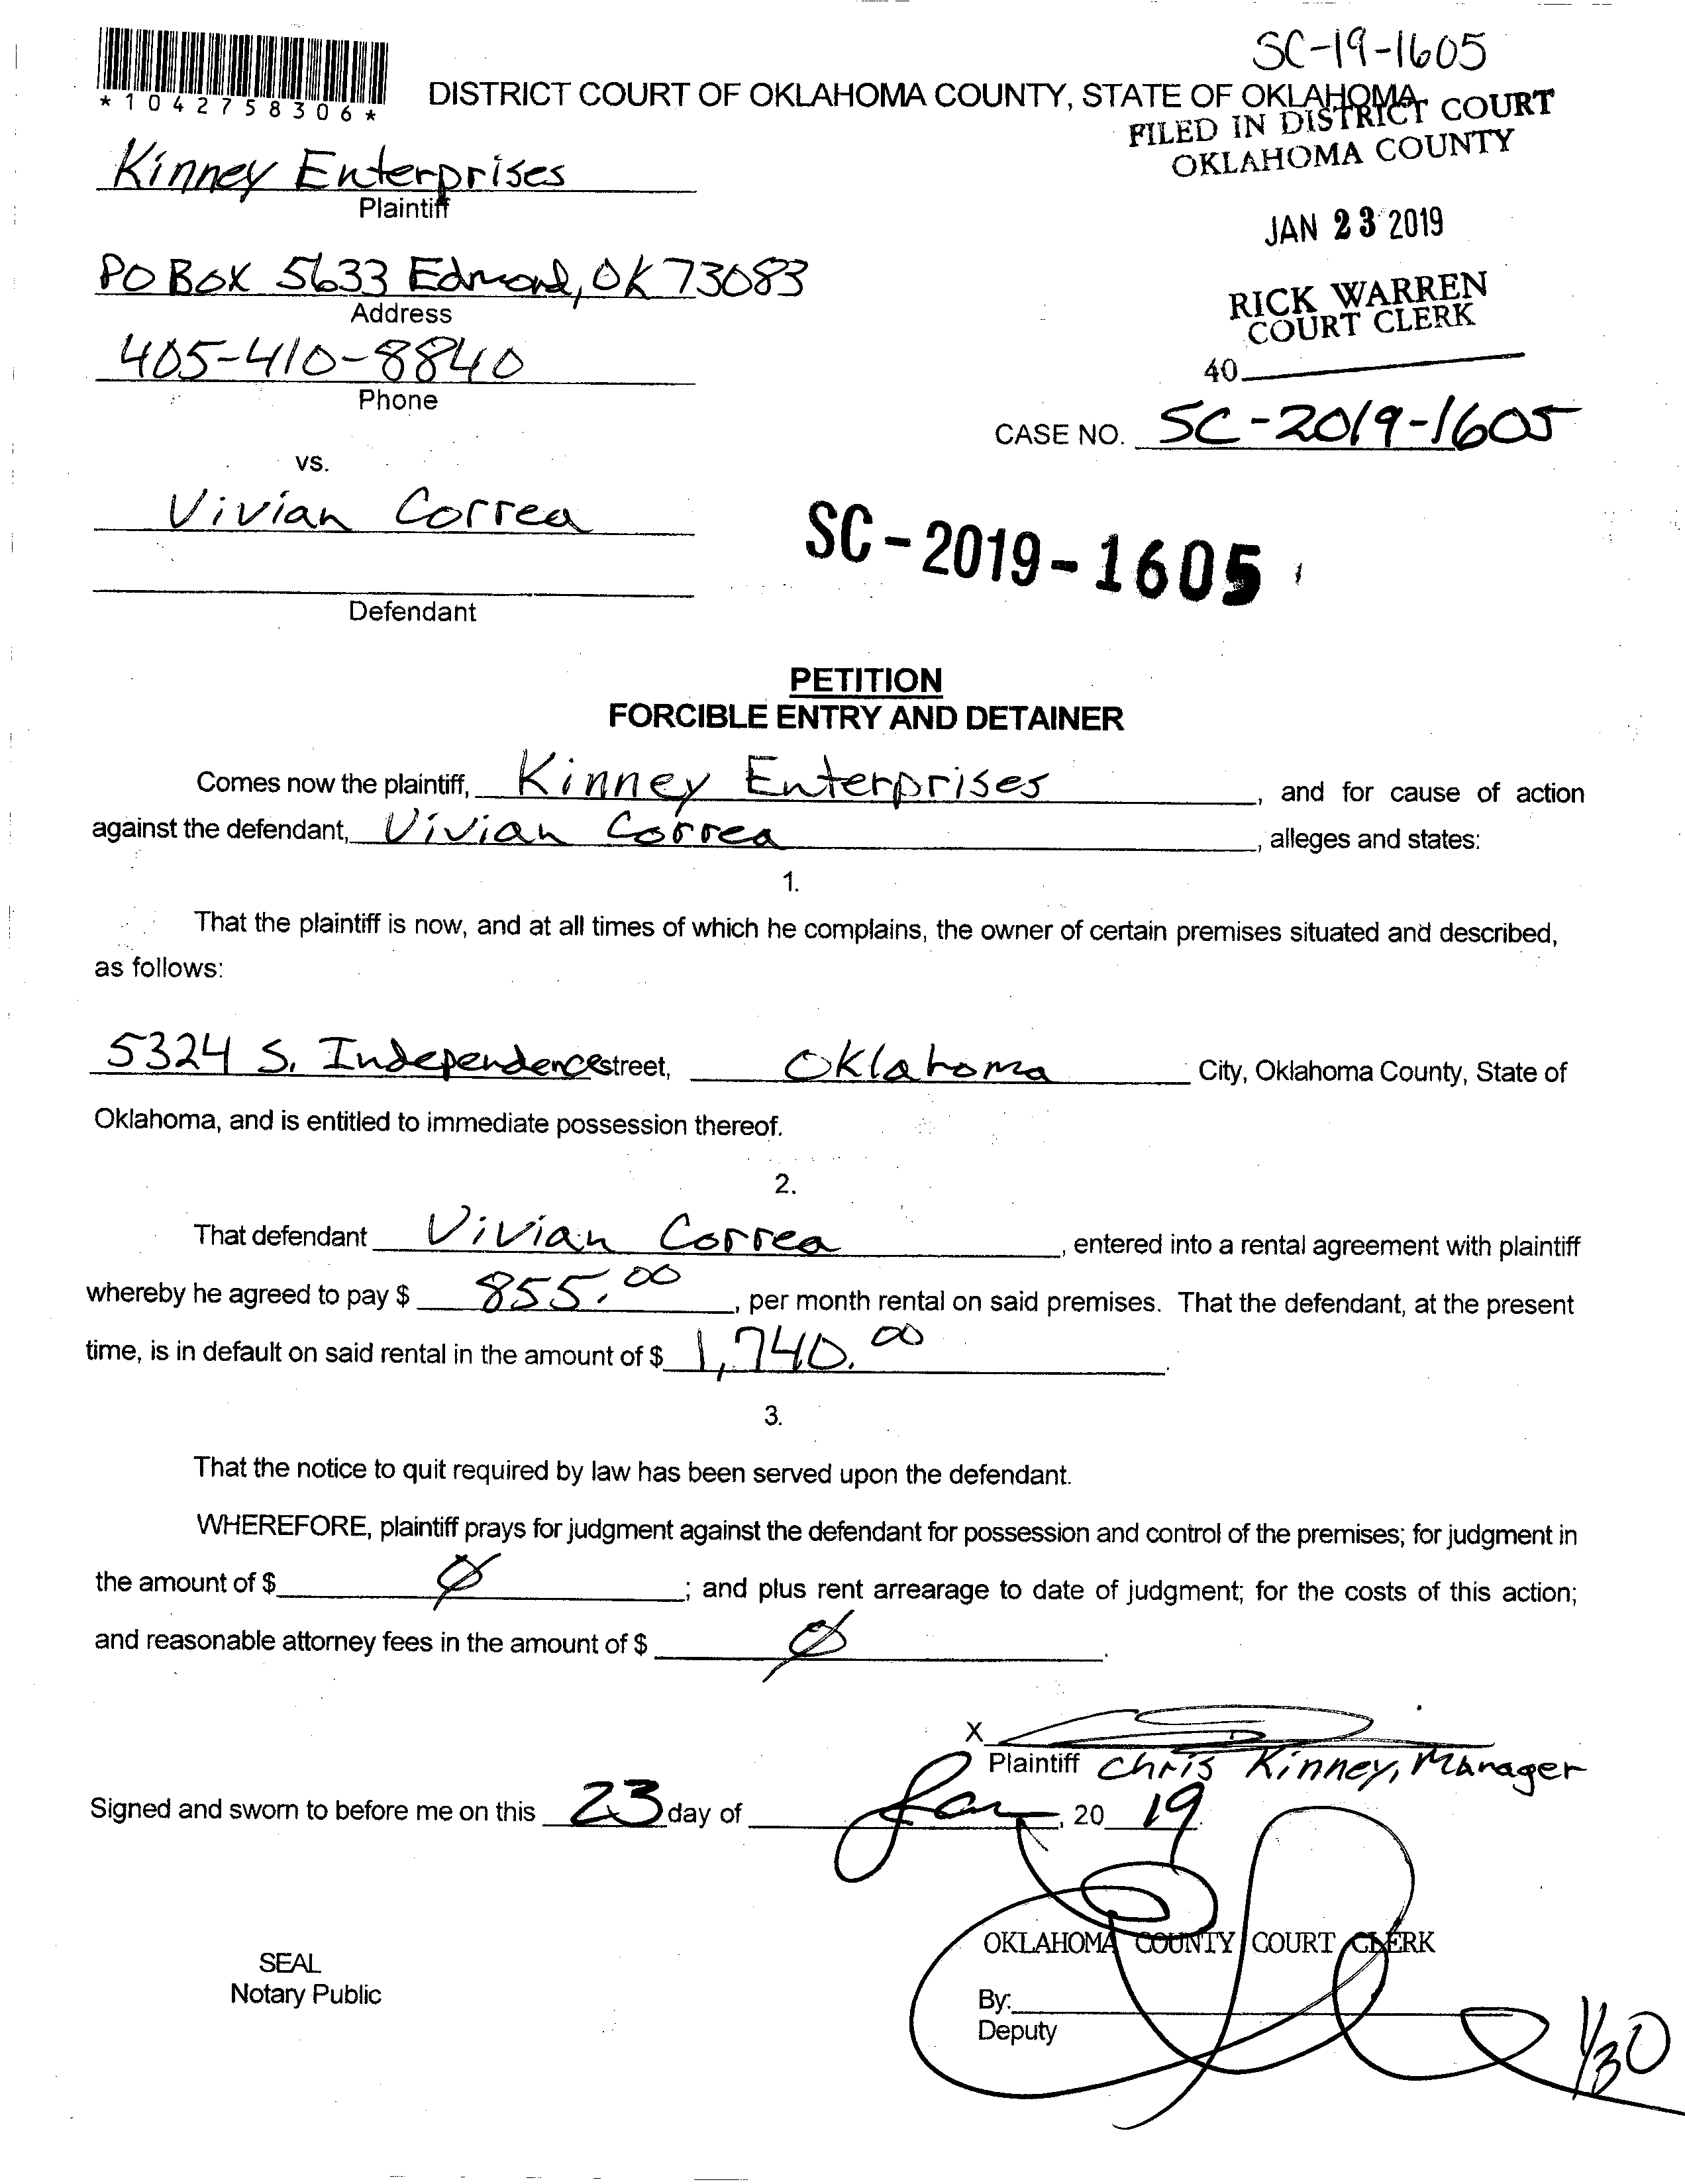 SC-19-1605
*1042758306*
DISTRICT COURT OF OKLAHOMA COUNTY, STATE OF OKLAHOMA
FILED IN DISTRICT COURT
OKLAHOMA COUNTY
Kinney Enterprises
Plaintiff
JAN 23 2019
PO Box 5633 Edmond, OK 73083
Address
RICK WARREN
COURT CLERK
405-410-8840
Phone
40
CASE NO. SC-2019-1605
vs.
Vivian Correa
SC-2019-1605
Defendant
PETITION
FORCIBLE ENTRY AND DETAINER
Comes now the plaintiff, Kinney Enterprises, and for cause of action
against the defendant, Vivian Correa, alleges and states:
1.
That the plaintiff is now, and at all times of which he complains, the owner of certain premises situated and described,
as follows:
5324 S. Independence street, Oklahoma City, Oklahoma County, State of
Oklahoma, and is entitled to immediate possession thereof.
2.
That defendant Vivian Correa, entered into a rental agreement with plaintiff
whereby he agreed to pay $ 855.00, per month rental on said premises. That the defendant, at the present
time, is in default on said rental in the amount of $ 1,740.00.
3.
That the notice to quit required by law has been served upon the defendant.
WHEREFORE, plaintiff prays for judgment against the defendant for possession and control of the premises; for judgment in
the amount of $ Ø; and plus rent arrearage to date of judgment; for the costs of this action;
and reasonable attorney fees in the amount of $ Ø.
X
Plaintiff Chris Kinney, Manager
Signed and sworn to before me on this 23 day of Jan, 20 19.
OKLAHOMA COUNTY COURT CLERK
SEAL
Notary Public
By:
Deputy
1/30